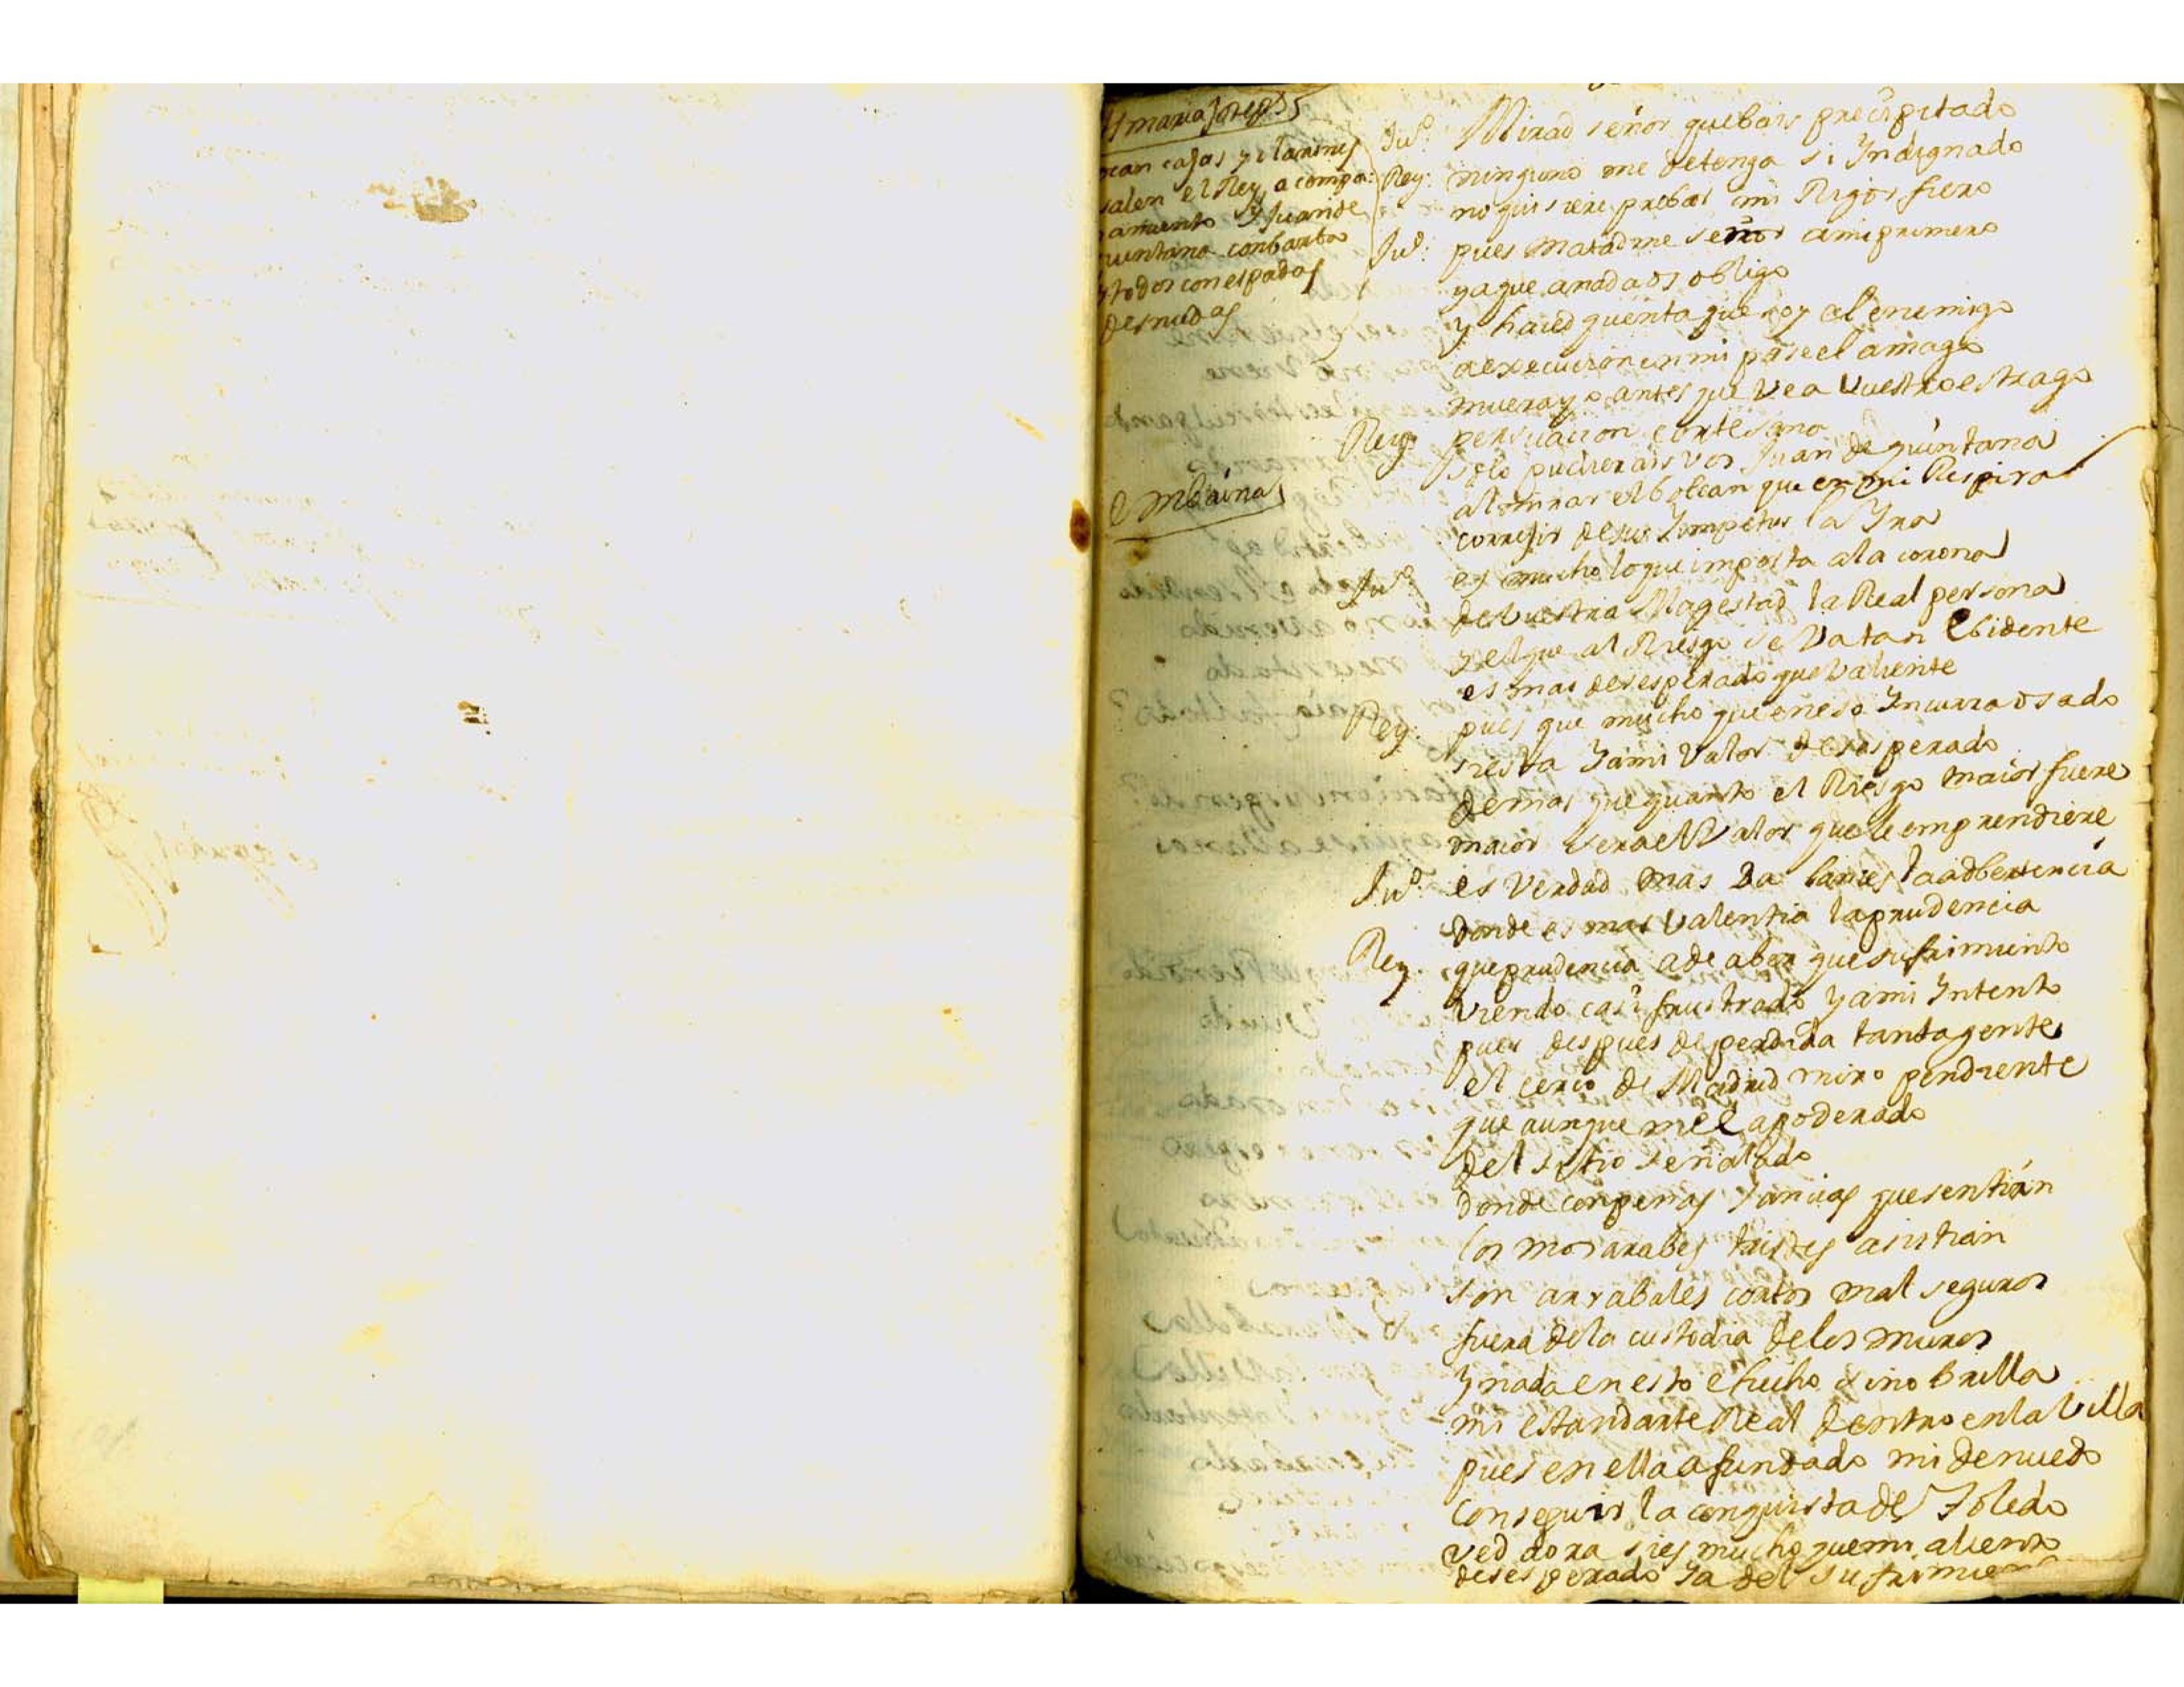 maria
ocan cajas y clarines
salen el Rey, acompa:
amiento Y Juan de
quintana con banda
y todos con espadas
desnudas
Embaina
Juº. Mirad señor que bais precipitado
Rey. ninguno me detenga si Yndignado
no quisiere probar mi Rigor fiero
Juº. pues matadme señor ami primero
ya que anada os obligo
y haced quenta que soy el enemigo
a execucion en mi pase el amago
muera yo antes que Vea Vuestro estrago
Rey. persuacion cortesana
solo pudierais vos Juan de quintana
el bolcan que en mi Respira
correjir de sus Ympetus la Yra
Juº. es mucho lo que importa ala corona
de Vuestra Magestad la Real persona
y el que al Riesgo se Va tan Ebidente
es mas desesperado que Valiente
Rey. pues que mucho que en eso Yncurra osado
si esta Ya mi Valor desesperado
demas que quanto el Riesgo maior fuere
maior sera el Valor que le emprendiere
Juº. es Verdad mas la adbertencia
donde es mas Valentia la prudencia
Rey. que prudencia a de aber que sufrimiento
Viendo casi frustrado Ya mi Yntento
pues despues de perdida tanta gente
el cerco de Madrid miro pendiente
que aunque me e apoderado
del sitio señalado
donde con penas Y ancias que sentian
los mosarabes tristes asistian
son arrabales cortos mal seguros
fuera dela custodia delos muros
Y nada en esto e hecho sino brilla
mi estandarte Real dentro en la Villa
pues en ella a fundado mi denuedo
Conseguir la conquista de Toledo
ved aora si es mucho que mi aliento
desesperado Ya del sufrimien